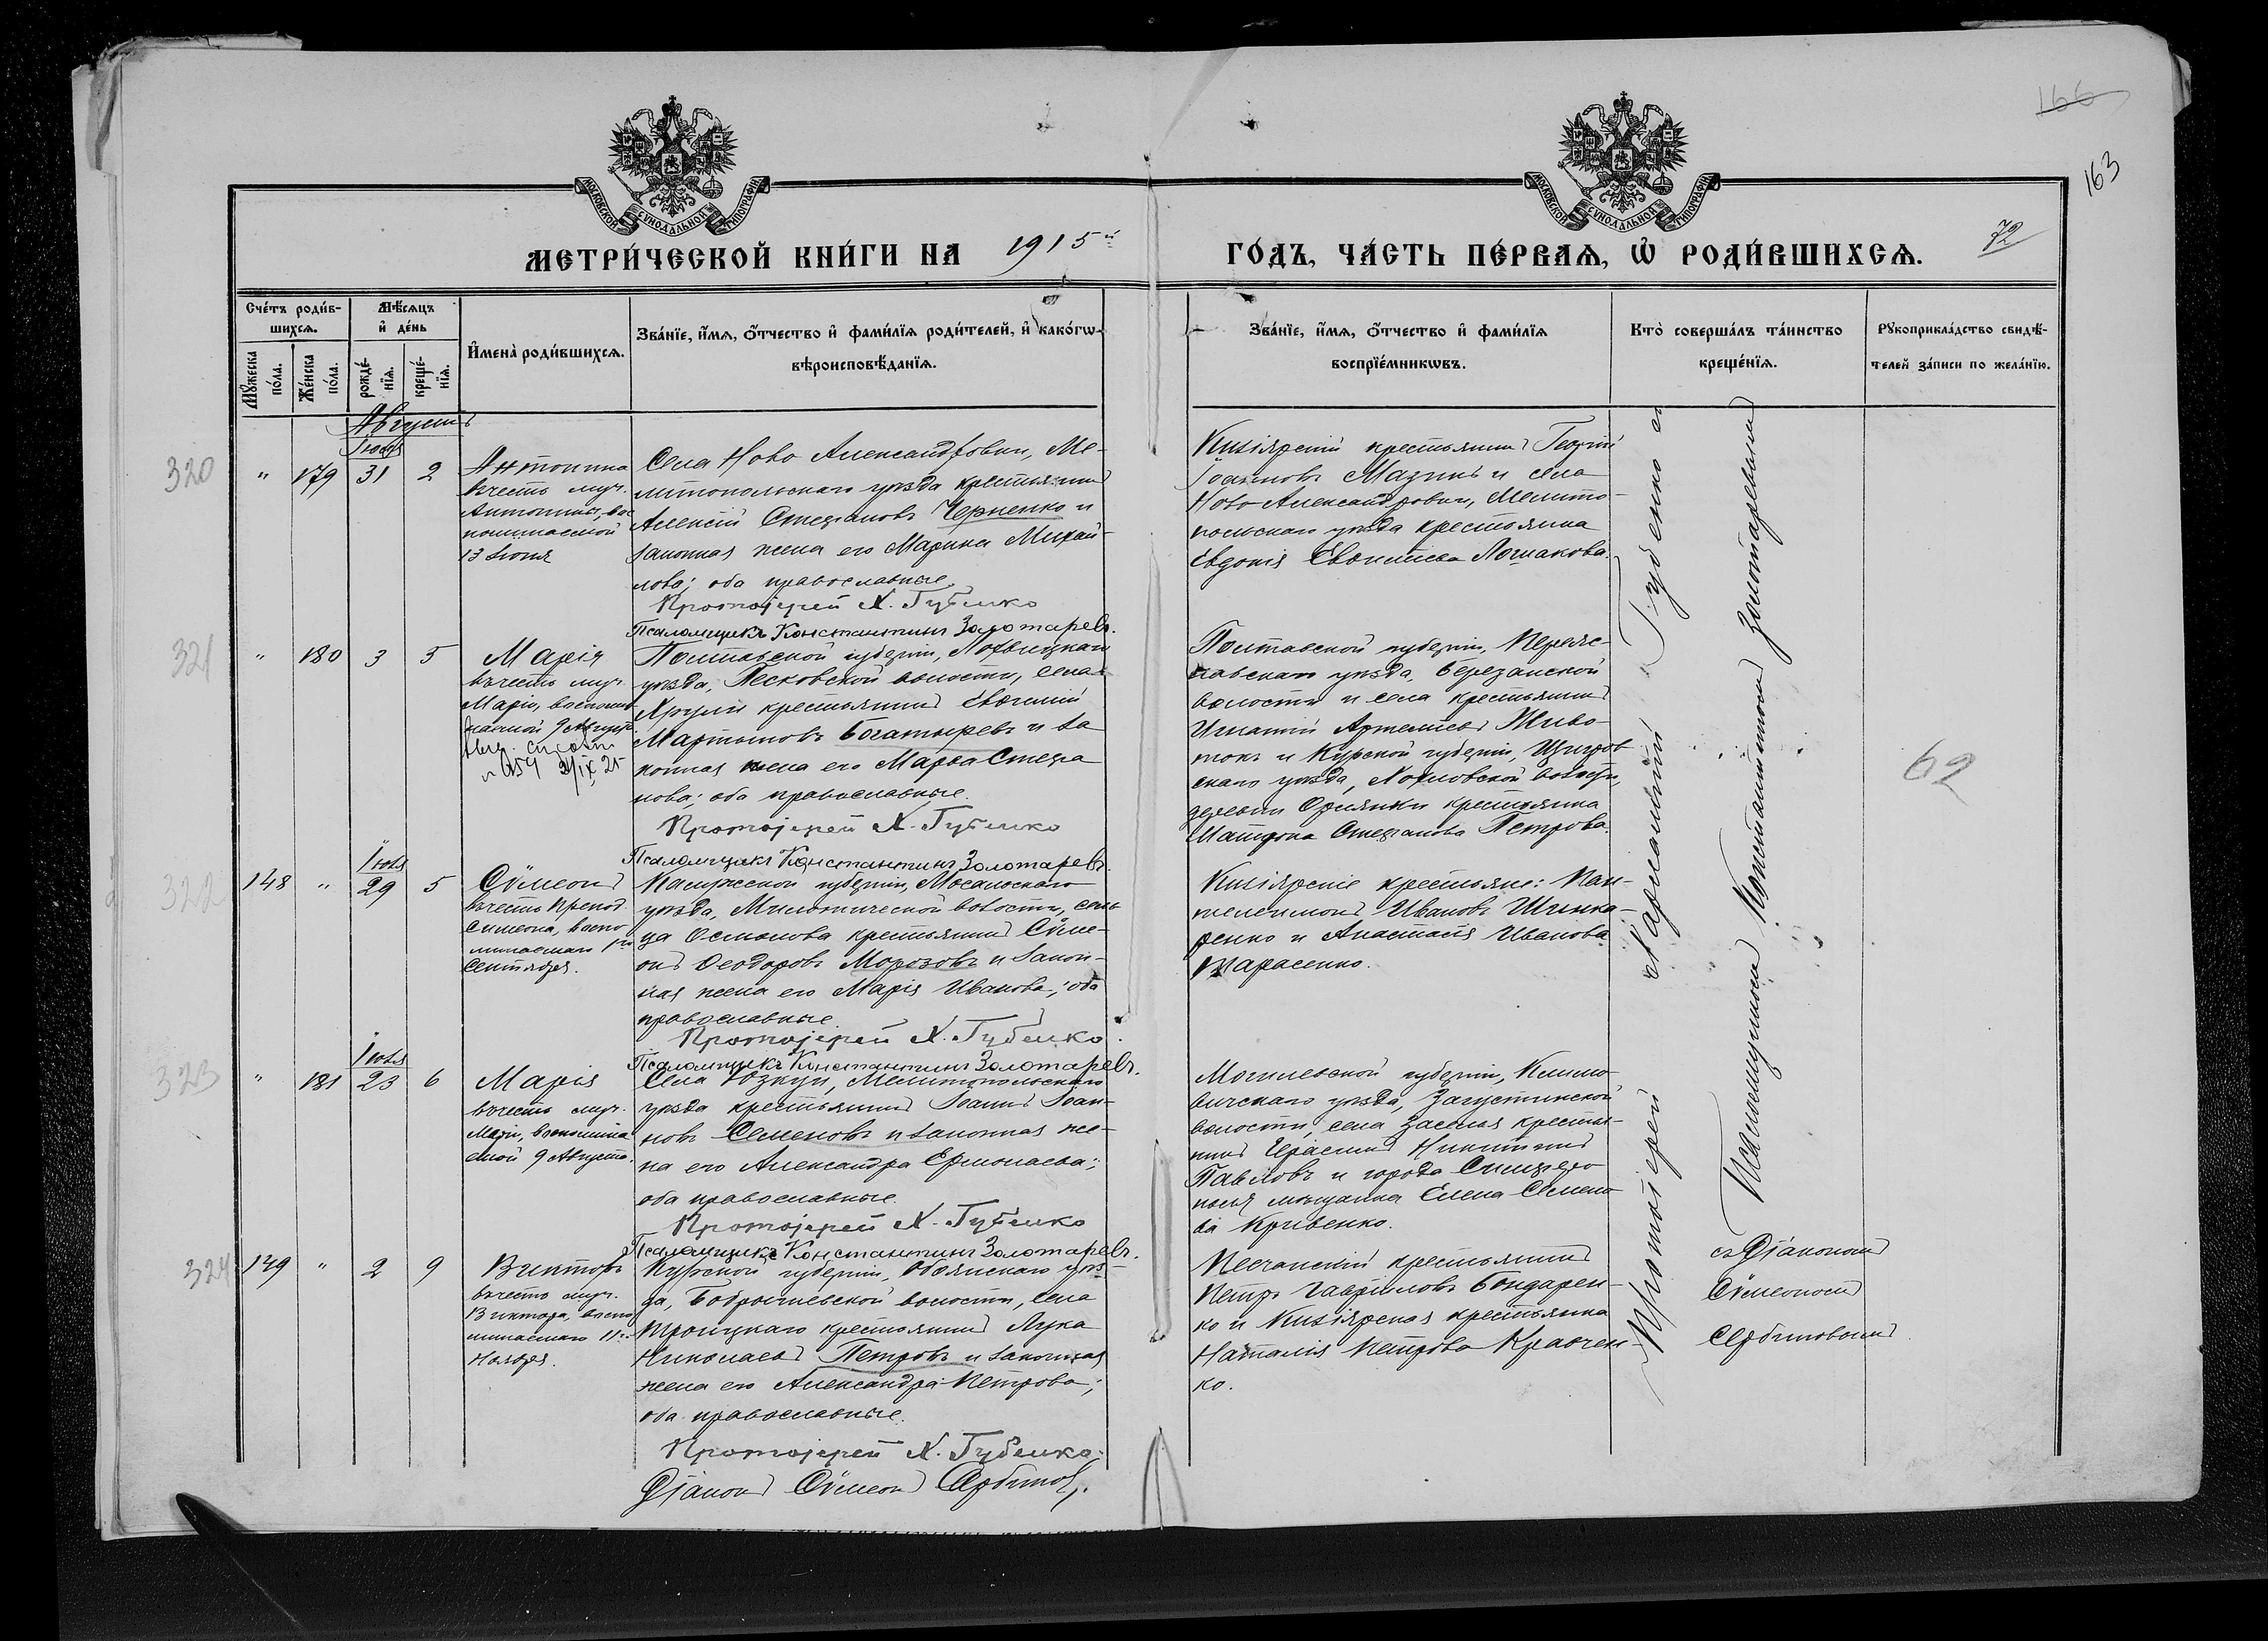 166
163
МОСКОВСКОЙ СѴНОДАЛЬНОЙ ТИПОГРАФІИ
МОСКОВСКОЙ СѴНОДАЛЬНОЙ ТИПОГРАФІИ
МЕТРИ́ЧЕСКОЙ КНИ́ГИ НА 1915й
ГО́ДЪ, ЧА́СТЬ ПЕ́РВАѦ, Ѿ РОДИ́ВШИХСѦ.
72
Сче́тъ роди́в-
шихсѧ.
Мꙋ́жеска по́ла.
Же́нска по́ла.
Мѣ́сѧцъ
и҆ де́нь
рожде́-
нїѧ.
креще́-
нїѧ.
И҆мена̀ роди́вшихсѧ.
Зва́нїе, и҆́мѧ, ѻ҆́тчество и҆ фами́лїѧ роди́телей, и҆ како́гѡ
вѣроисповѣ́данїѧ.
Зва́нїе, и҆́мѧ, ѻ҆́тчество и҆ фами́лїѧ
воспрїе́мникѡвъ.
Кто̀ соверша́лъ та́инство
креще́нїѧ.
Рꙋкоприкла́дство свидѣ́-
телей за́писи по жела́нїю.
Августъ
320
" 179
Іюля
31 2
Антонина
въ честь муч.
Антонины, вос
поминаемой
13 Іюня
Села Ново Александровки, Ме-
литопольскаго уѣзда крестьянинъ
Алексій Стефановъ Черненко и
законная жена его Марина Михай-
лова; оба православные.
Протоіерей Х. Губенко
Псаломщикъ Константинъ Золотаревъ.
Кизіярскій крестьянинъ Георгій
Іоанновъ Мазинъ и села
Ново Александровки, Мелито-
польскаго уѣзда крестьянка
Евдокія Лошакова.
321
" 180 3 5
Марія
въ честь муч.
Маріи, воспоми
наемой 9 Августа
Полтавской губерніи, Лохвицкаго
уѣзда, Песковской волости, села
крестьянинъ Евѳимій
Мартыновъ Богатыревъ и за
конная жена его Марѳа Стефа
нова; оба православные.
Протоіерей Х. Губенко
Псаломщикъ Константинъ Золотаревъ.
Полтавской губерніи, Переяс-
лавскаго уѣзда, Березанской
волости и села крестьянинъ
Игнатій Артемьевъ Живо-
токъ и Курской губерніи, Щигров
скаго уѣзда, волости,
деревни крестьянка
Матрона Стефанова Петрова.
62
322
148 "
Іюля
29 5
Сѵмеонъ
въ честь препод.
Симеона, воспо
минаемаго 1го
Сентября.
Калужской губерніи, Мосальскаго
уѣзда, волости, сель
ца крестьянинъ Сѵме-
онъ Ѳеодоровъ Морозовъ и закон-
ная жена его Марія Иванова; оба
православные.
Протоіерей Х. Губенко.
Псаломщикъ Константинъ Золотаревъ.
Кизіярскіе крестьяне: Пан-
телеимонъ Ивановъ Шинка-
ренко и Анастасія Иванова
Тарасенко.
323
" 181
Іюля
23 6
Марія
въ честь муч.
Маріи, воспомина
емой 9 Августа.
Села Юзкуи, Мелитопольскаго
уѣзда крестьянинъ Іоаннъ Іоан-
новъ Семеновъ и законная же-
на его Александра Ермолаева;
оба православные.
Протоіерей Х. Губенко
Псаломщикъ Константинъ Золотаревъ.
Могилевской губерніи, Климо
вичскаго уѣзда, Загустинской
волости, села крестья-
нинъ Герасимъ Никитинъ
Павловъ и города Симферо
поля мѣщанка Елена Семено
ва Кривенко.
324
149 " 2 9
Викторъ
въ честь муч.
Виктора, воспо
минаемаго 11го
Ноября.
Курской губерніи, Обоянскаго уѣз-
да, Бобрышевской волости, села
Троицкаго крестьянинъ Лука
Николаевъ Петровъ и законная
жена его Александра Петрова;
оба православные.
Протоіерей Х. Губенко.
Діаконъ Сѵмеонъ Сербиновъ.
Песчанскій крестьянинъ
Петръ Гавриловъ Бондарен-
ко и Кизіярская крестьянка
Наталія Петрова Кравчен-
ко.
Протоіерей Харлампій Губенко съ
Псаломщикомъ Константиномъ Золотаревымъ
съ Діакономъ
Сѵмеономъ
Сербиновымъ